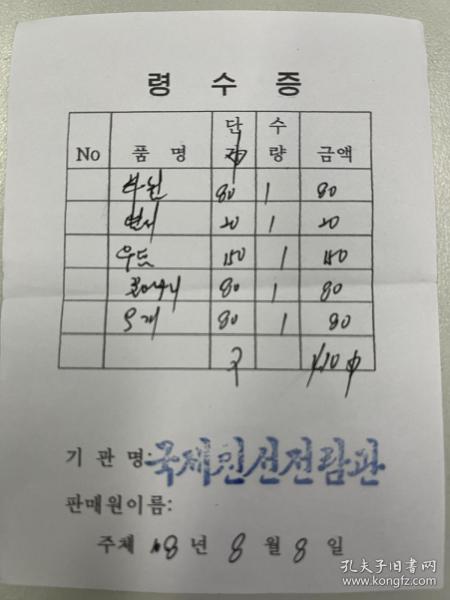 령 수 증
No 품 명 단 가 수 량 금액
80 1 80
엽서 20 1 20
우표 150 1 150
80 1 80
80 1 80
기 관 명: 국제친선전람관
판매원이름:
주체 108 년 8 월 8 일
孔夫子旧书网
www.kongfz.com